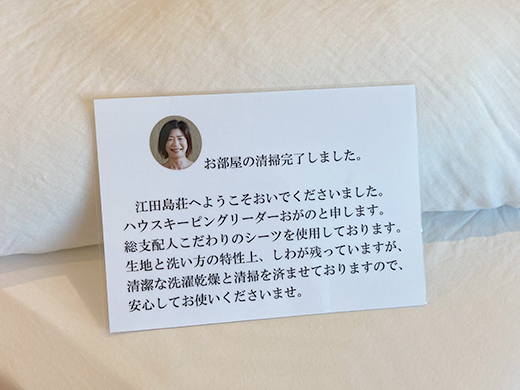 お部屋の清掃完了しました。
江田島荘へようこそおいでくださいました。
ハウスキーピングリーダーおがのと申します。
総支配人こだわりのシーツを使用しております。
生地と洗い方の特性上、しわが残っていますが、
清潔な洗濯乾燥と清掃を済ませておりますので、
安心してお使いくださいませ。